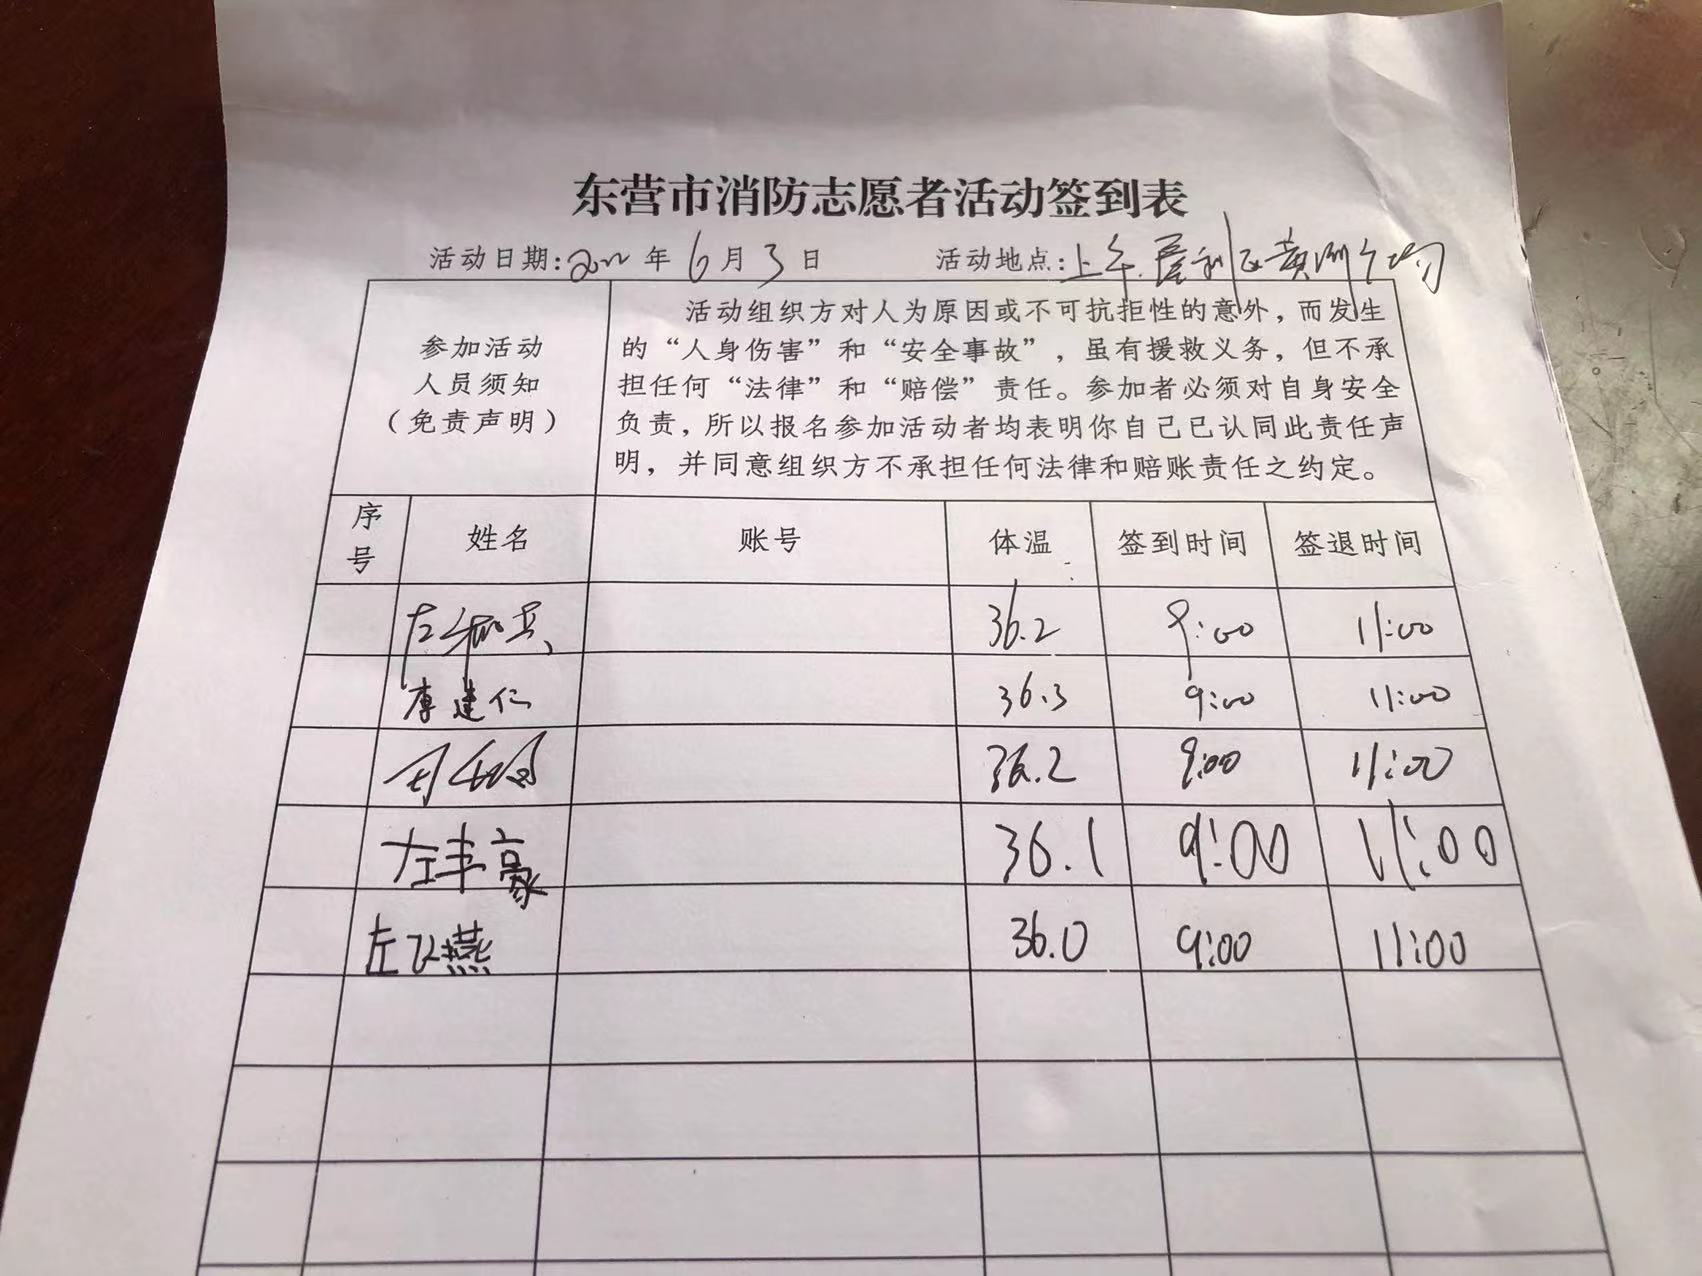 东营市消防志愿者活动签到表
活动日期:2022年6月3日 活动地点:上午.垦利区黄河广场
参加活动
人员须知
(免责声明)
活动组织方对人为原因或不可抗拒性的意外，而发生
的“人身伤害”和“安全事故”，虽有援救义务，但不承
担任何“法律”和“赔偿”责任。参加者必须对自身安全
负责，所以报名参加活动者均表明你自己已认同此责任声
明，并同意组织方不承担任何法律和赔账责任之约定。
序号 姓名 账号 体温 签到时间 签退时间
36.2 9:00 11:00
李建仁 36.3 9:00 11:00
36.2 9:00 11:00
左丰豪 36.1 9:00 11:00
左飞燕 36.0 9:00 11:00